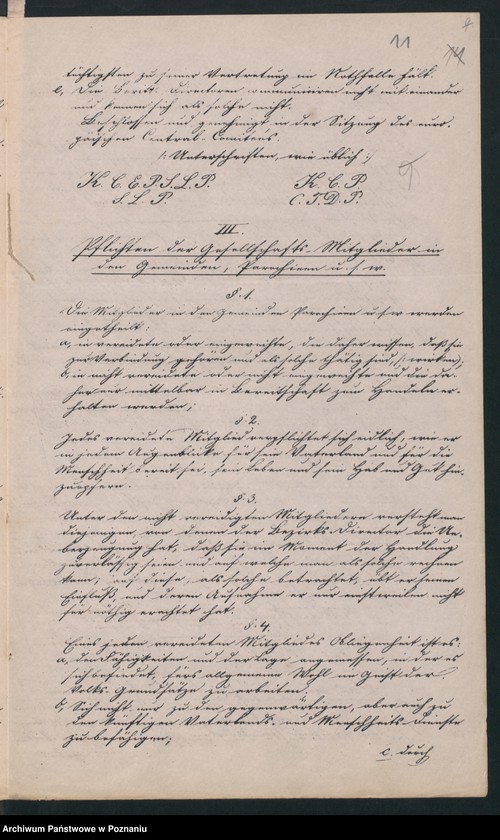 11
tüchtigsten zu seiner Vertretung im Nothfalle hält.
c, Die Bezirks Directoren communiciren nicht mit einander
und kennen sich als solche nicht.
Beschlossen und genehmigt in der Sitzung des euro-
päischen Central-Comiteus.
/: Unterschriften, wie üblich :/
K. C. E. P. S. L. P. K. C. P
S. L. P. C. T. D. P.
III.
Pflichten der Gesellschafts-Mitglieder in
den Gemeinden, Parochieen u. s. w.
§. 1.
Die Mitglieder in den Gemeinden Parochieen u. s w werden
eingetheilt:
a, in vereidete oder eingeweihte, die daher wissen, daß sie
zur Verbindung gehören und als solche thätig sind, /: wirken :/
b, in nicht vereidete oder nicht eingeweihte und die da-
her nur mittelbar in Bereitschaft zum Handeln er-
halten werden;
§. 2.
Jedes vereidete Mitglied verpflichtet sich eidlich, wie er
in jedem Augenblicke für sein Vaterland und für die
Menschheit bereit sei, sein Leben und sein Hab und Gut hin-
zuopfern.
§. 3.
Unter den nicht vereidigten Mitgliedern versteht man
diejenigen, von denen der Bezirks-Director die Ue-
berzeugung hat, daß sie im Moment der Handlung
zuverlässig seien und auf welche man als solche rechnen
kann; auf diese, als solche betrachtet, übt er seinen
Einfluß, und deren Aufnahme er nur einstweilen nicht
für nöthig erachtet hat.
§. 4.
Eines jeden vereideten Mitgliedes Obliegenheit ist es:
a, den Fähigkeiten und der Lage angemessen, in der es
sich befindet, fürs allgemeine Wohl im Geist der
Volks-Grundsätze zu arbeiten.
b, Sich nicht nur zu den gegenwärtigen, aber auch zu
den künftigen Vaterlands- und Menschheits-Dienste
zu befähigen;
c. durch
Archiwum Państwowe w Poznaniu